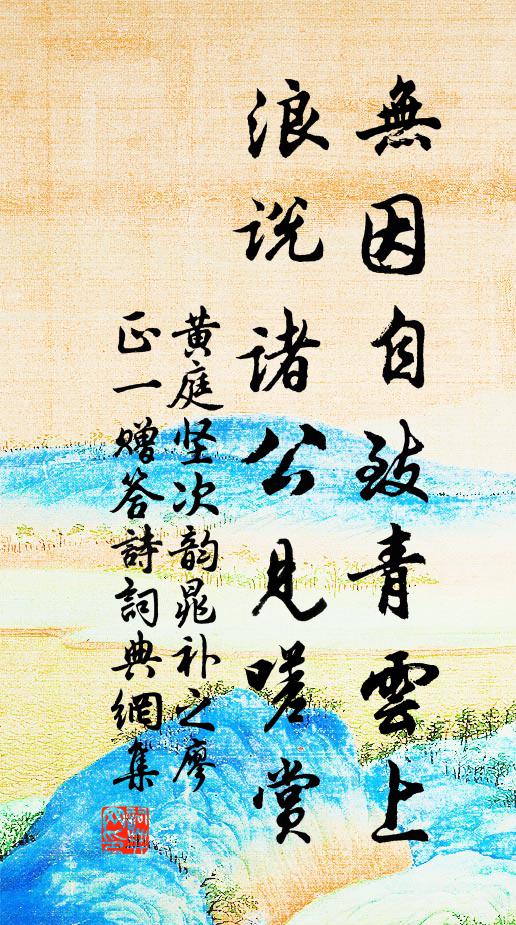 無因自致青雲上
浪说諸公見嗟赏
黄庭坚次韵晁补之廖
正一赠答詩詞典網集